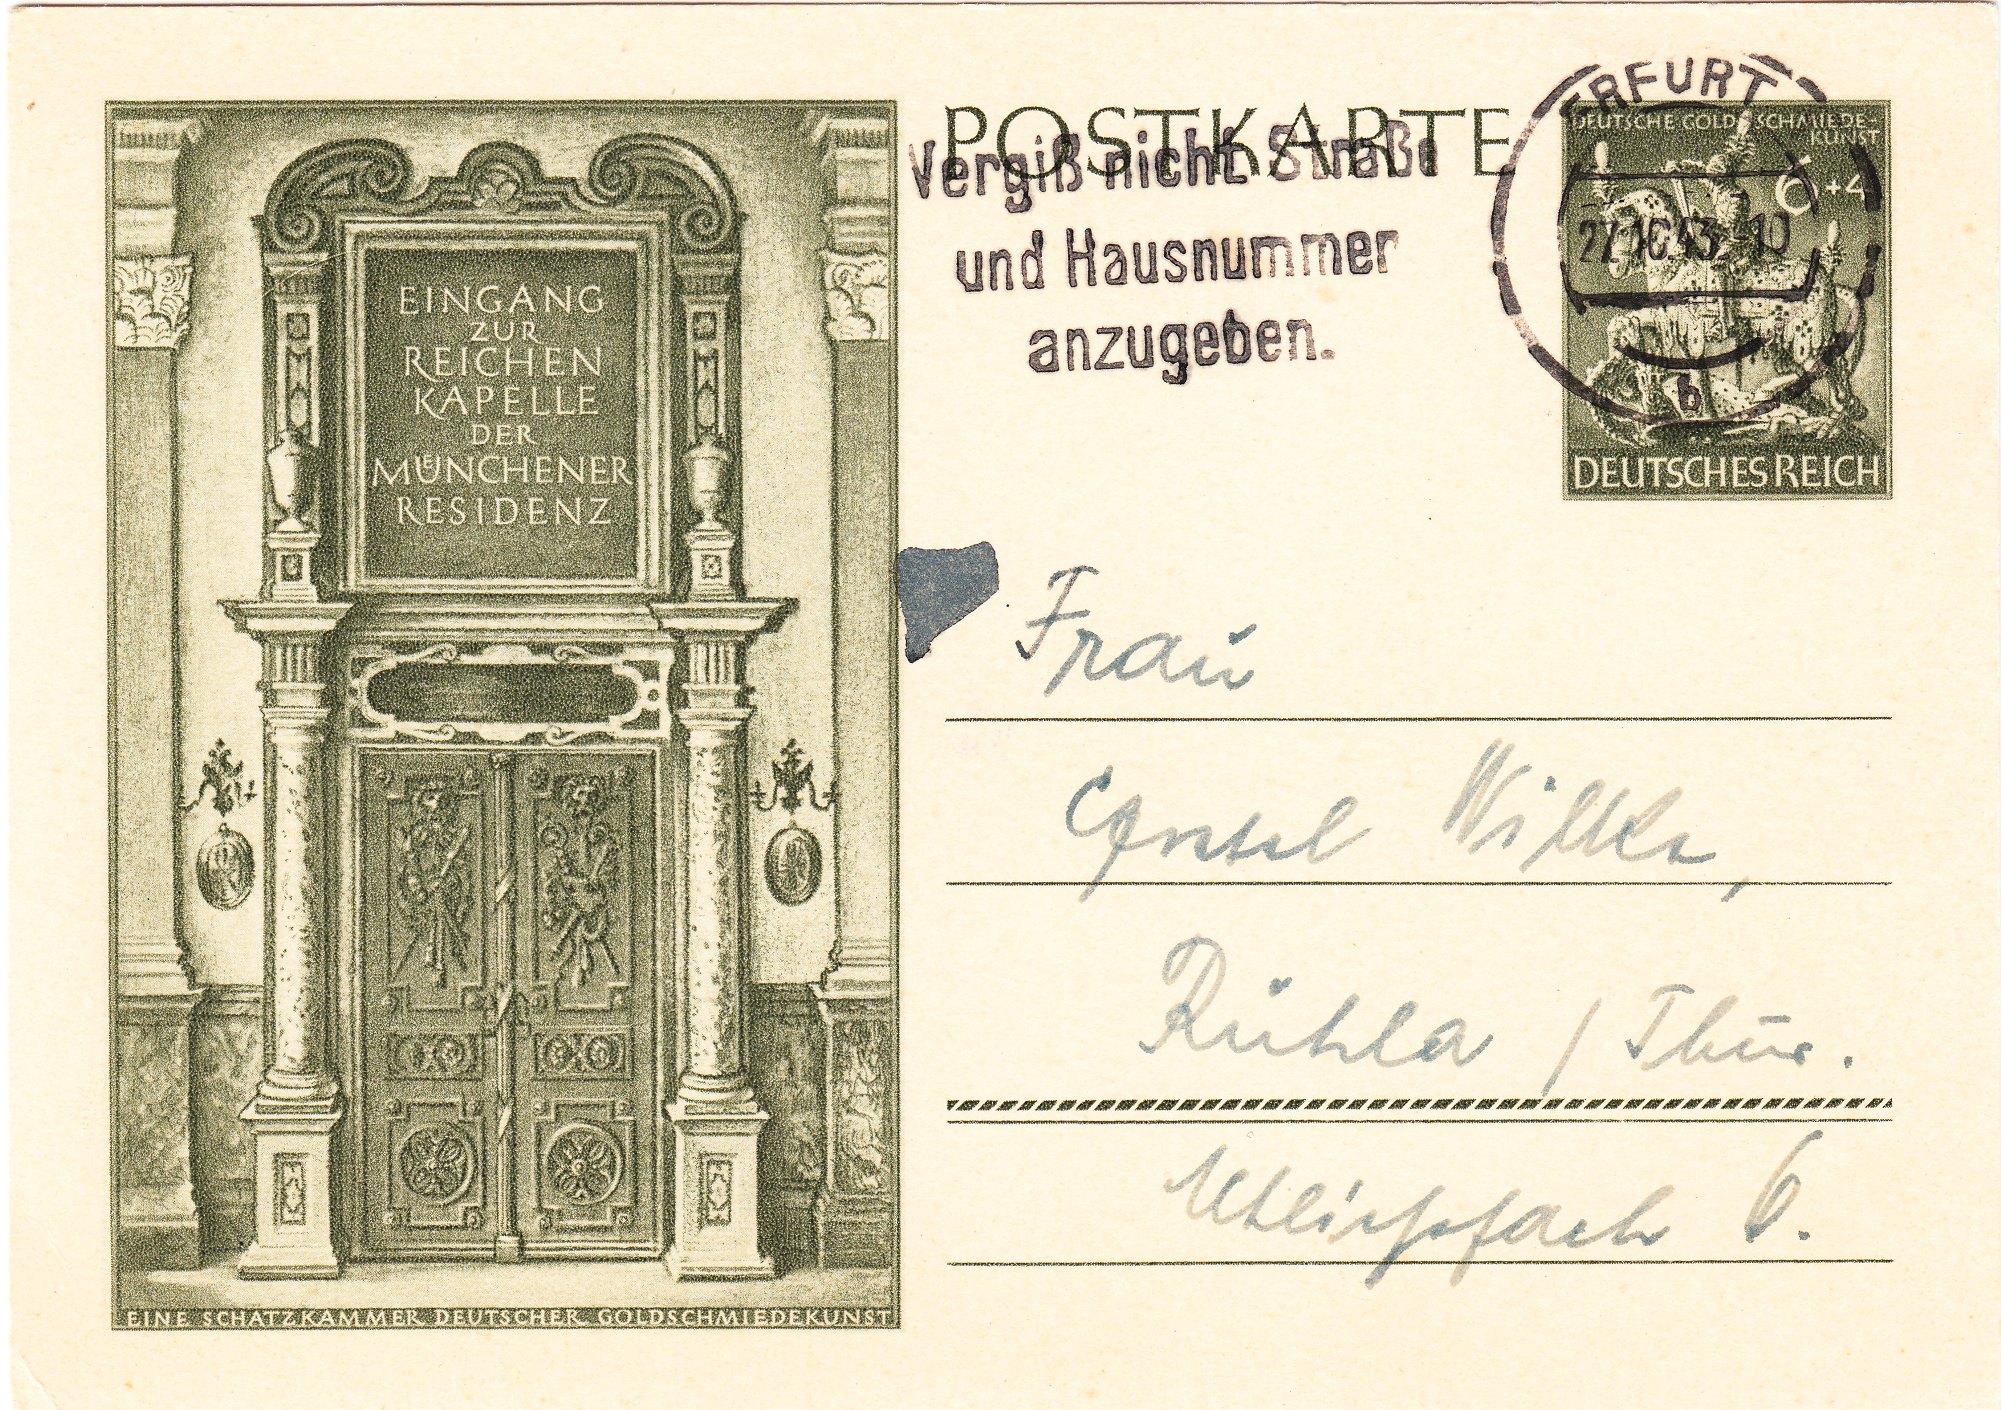 POSTKARTE
Vergiß nicht Straße
und Hausnummer
anzugeben.
ERFURT
27.10.43. 10
b
DEUTSCHE GOLDSCHMIEDE-
KUNST
6+4
DEUTSCHES REICH
EINGANG
ZUR
REICHEN
KAPELLE
DER
MUENCHENER
RESIDENZ
EINE SCHATZKAMMER DEUTSCHER GOLDSCHMIEDEKUNST
Frau
Wilke,
Ruhla / Thür.
6.